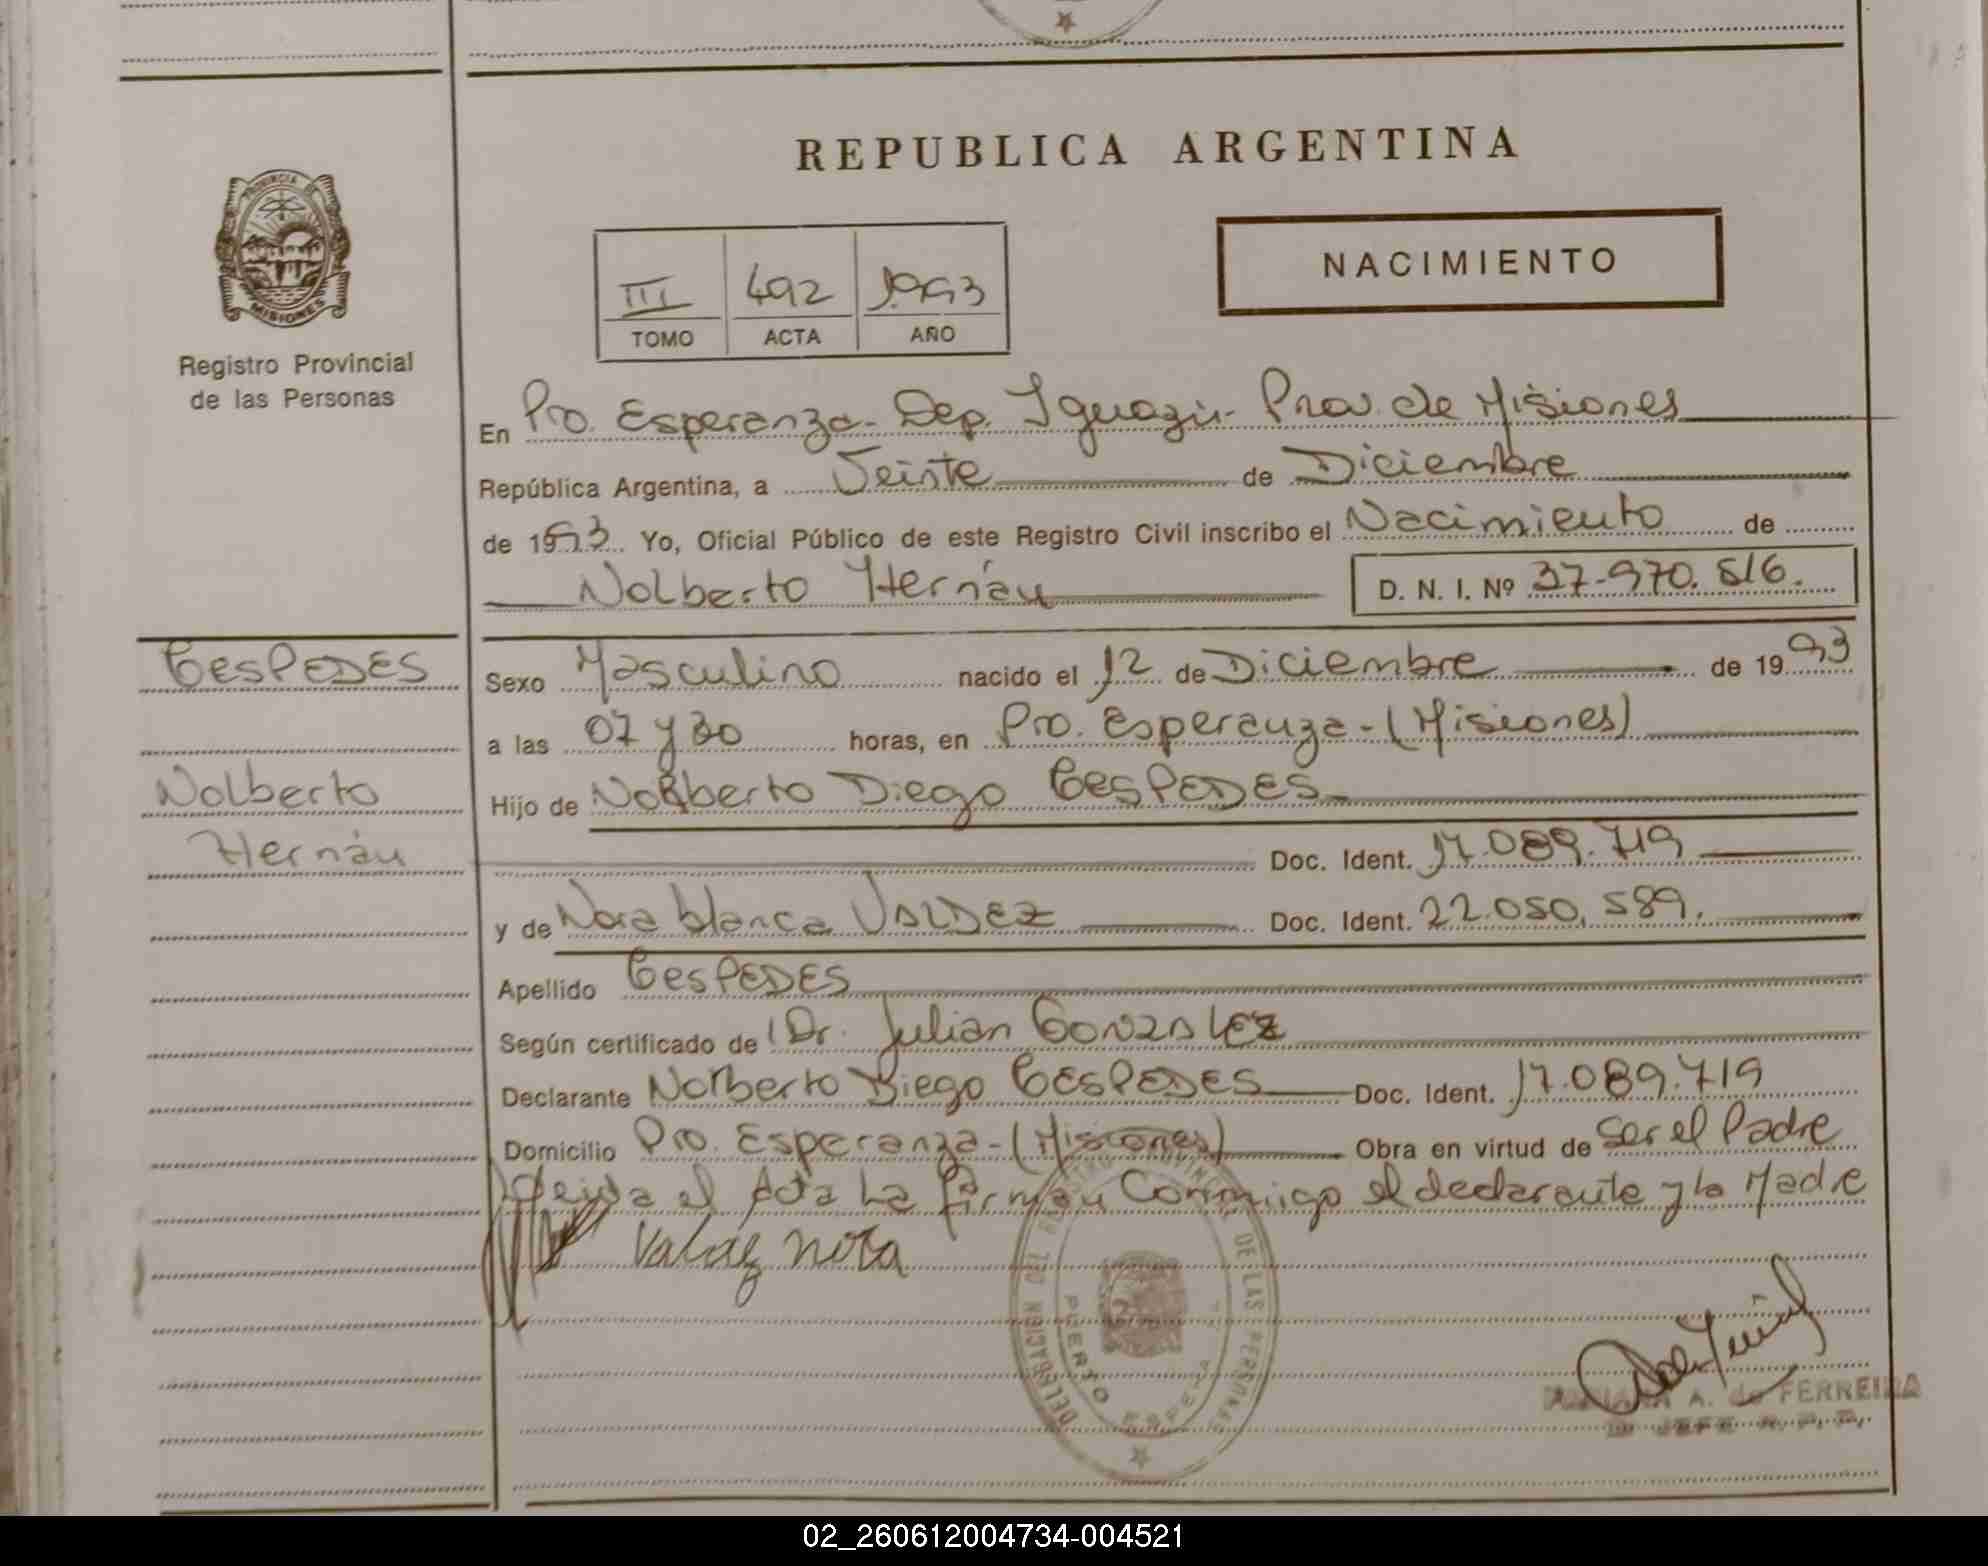 REPUBLICA ARGENTINA
PROVINCIA DE
MISIONES
Registro Provincial
de las Personas
III 492 1993
TOMO ACTA AÑO
NACIMIENTO
En Pto. Esperanza - Dep. Iguazú - Prov. de Misiones
República Argentina, a Veinte de Diciembre
de 1993 Yo, Oficial Público de este Registro Civil inscribo el Nacimiento de
Nolberto Hernán D. N. I. Nº 37.970.516.
CesPEDES
Nolberto
Hernán
Sexo Masculino nacido el 12 de Diciembre de 1993
a las 07 y 30 horas, en Pto. Esperanza - (Misiones)
Hijo de Norberto Diego CesPEDES
Doc. Ident. 17.089.719
y de Nora blanca VALDEZ Doc. Ident. 22.050.589.
Apellido CesPEDES
Según certificado de Dr. Julian GONZALEZ
Declarante Norberto Diego CESPEDES Doc. Ident. 17.089.719
Domicilio Pto. Esperanza - (Misiones) Obra en virtud de Ser el Padre
Leida el Acta La firman Conmigo el declarante y la Madre
Valdez nora
DELEGACION DEL REGISTRO PROVINCIAL DE LAS PERSONAS
PUERTO ESPERANZA
A. de FERREIRA
JEFE R. P. P.
02_260612004734-004521